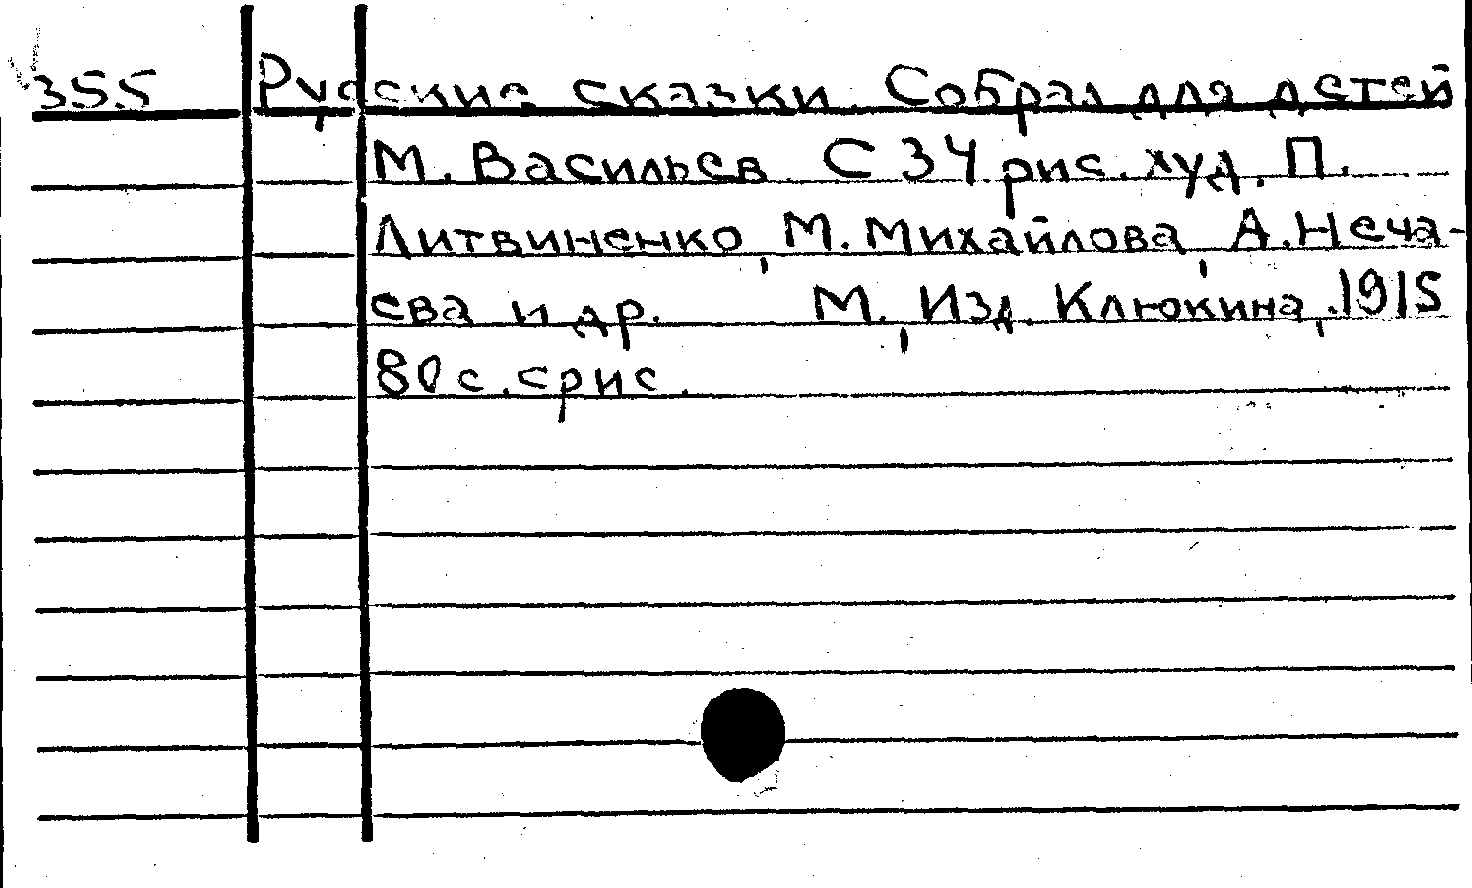 355 Русские сказки. Собрал для детей
М. Васильев. С 34 рис. худ. П.
Литвиненко, М. Михайлова, А. Неча-
ева и др. М., Изд. Клюкина, 1915
80 с. с рис.